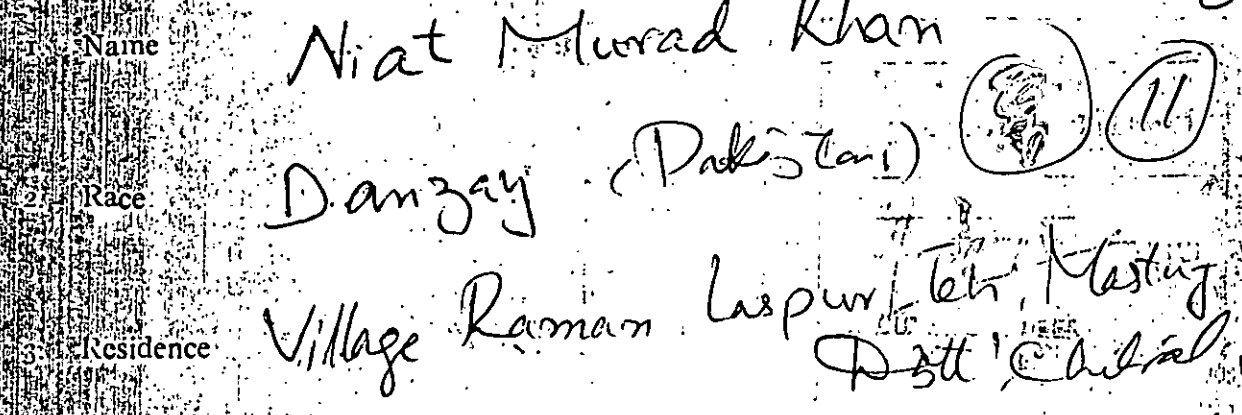 1. Name Niat Murad Khan
11
2. Race Danzay (Pakistani)
3. Residence Village Raman Laspur Teh, Mastuj
Distt, Chitral